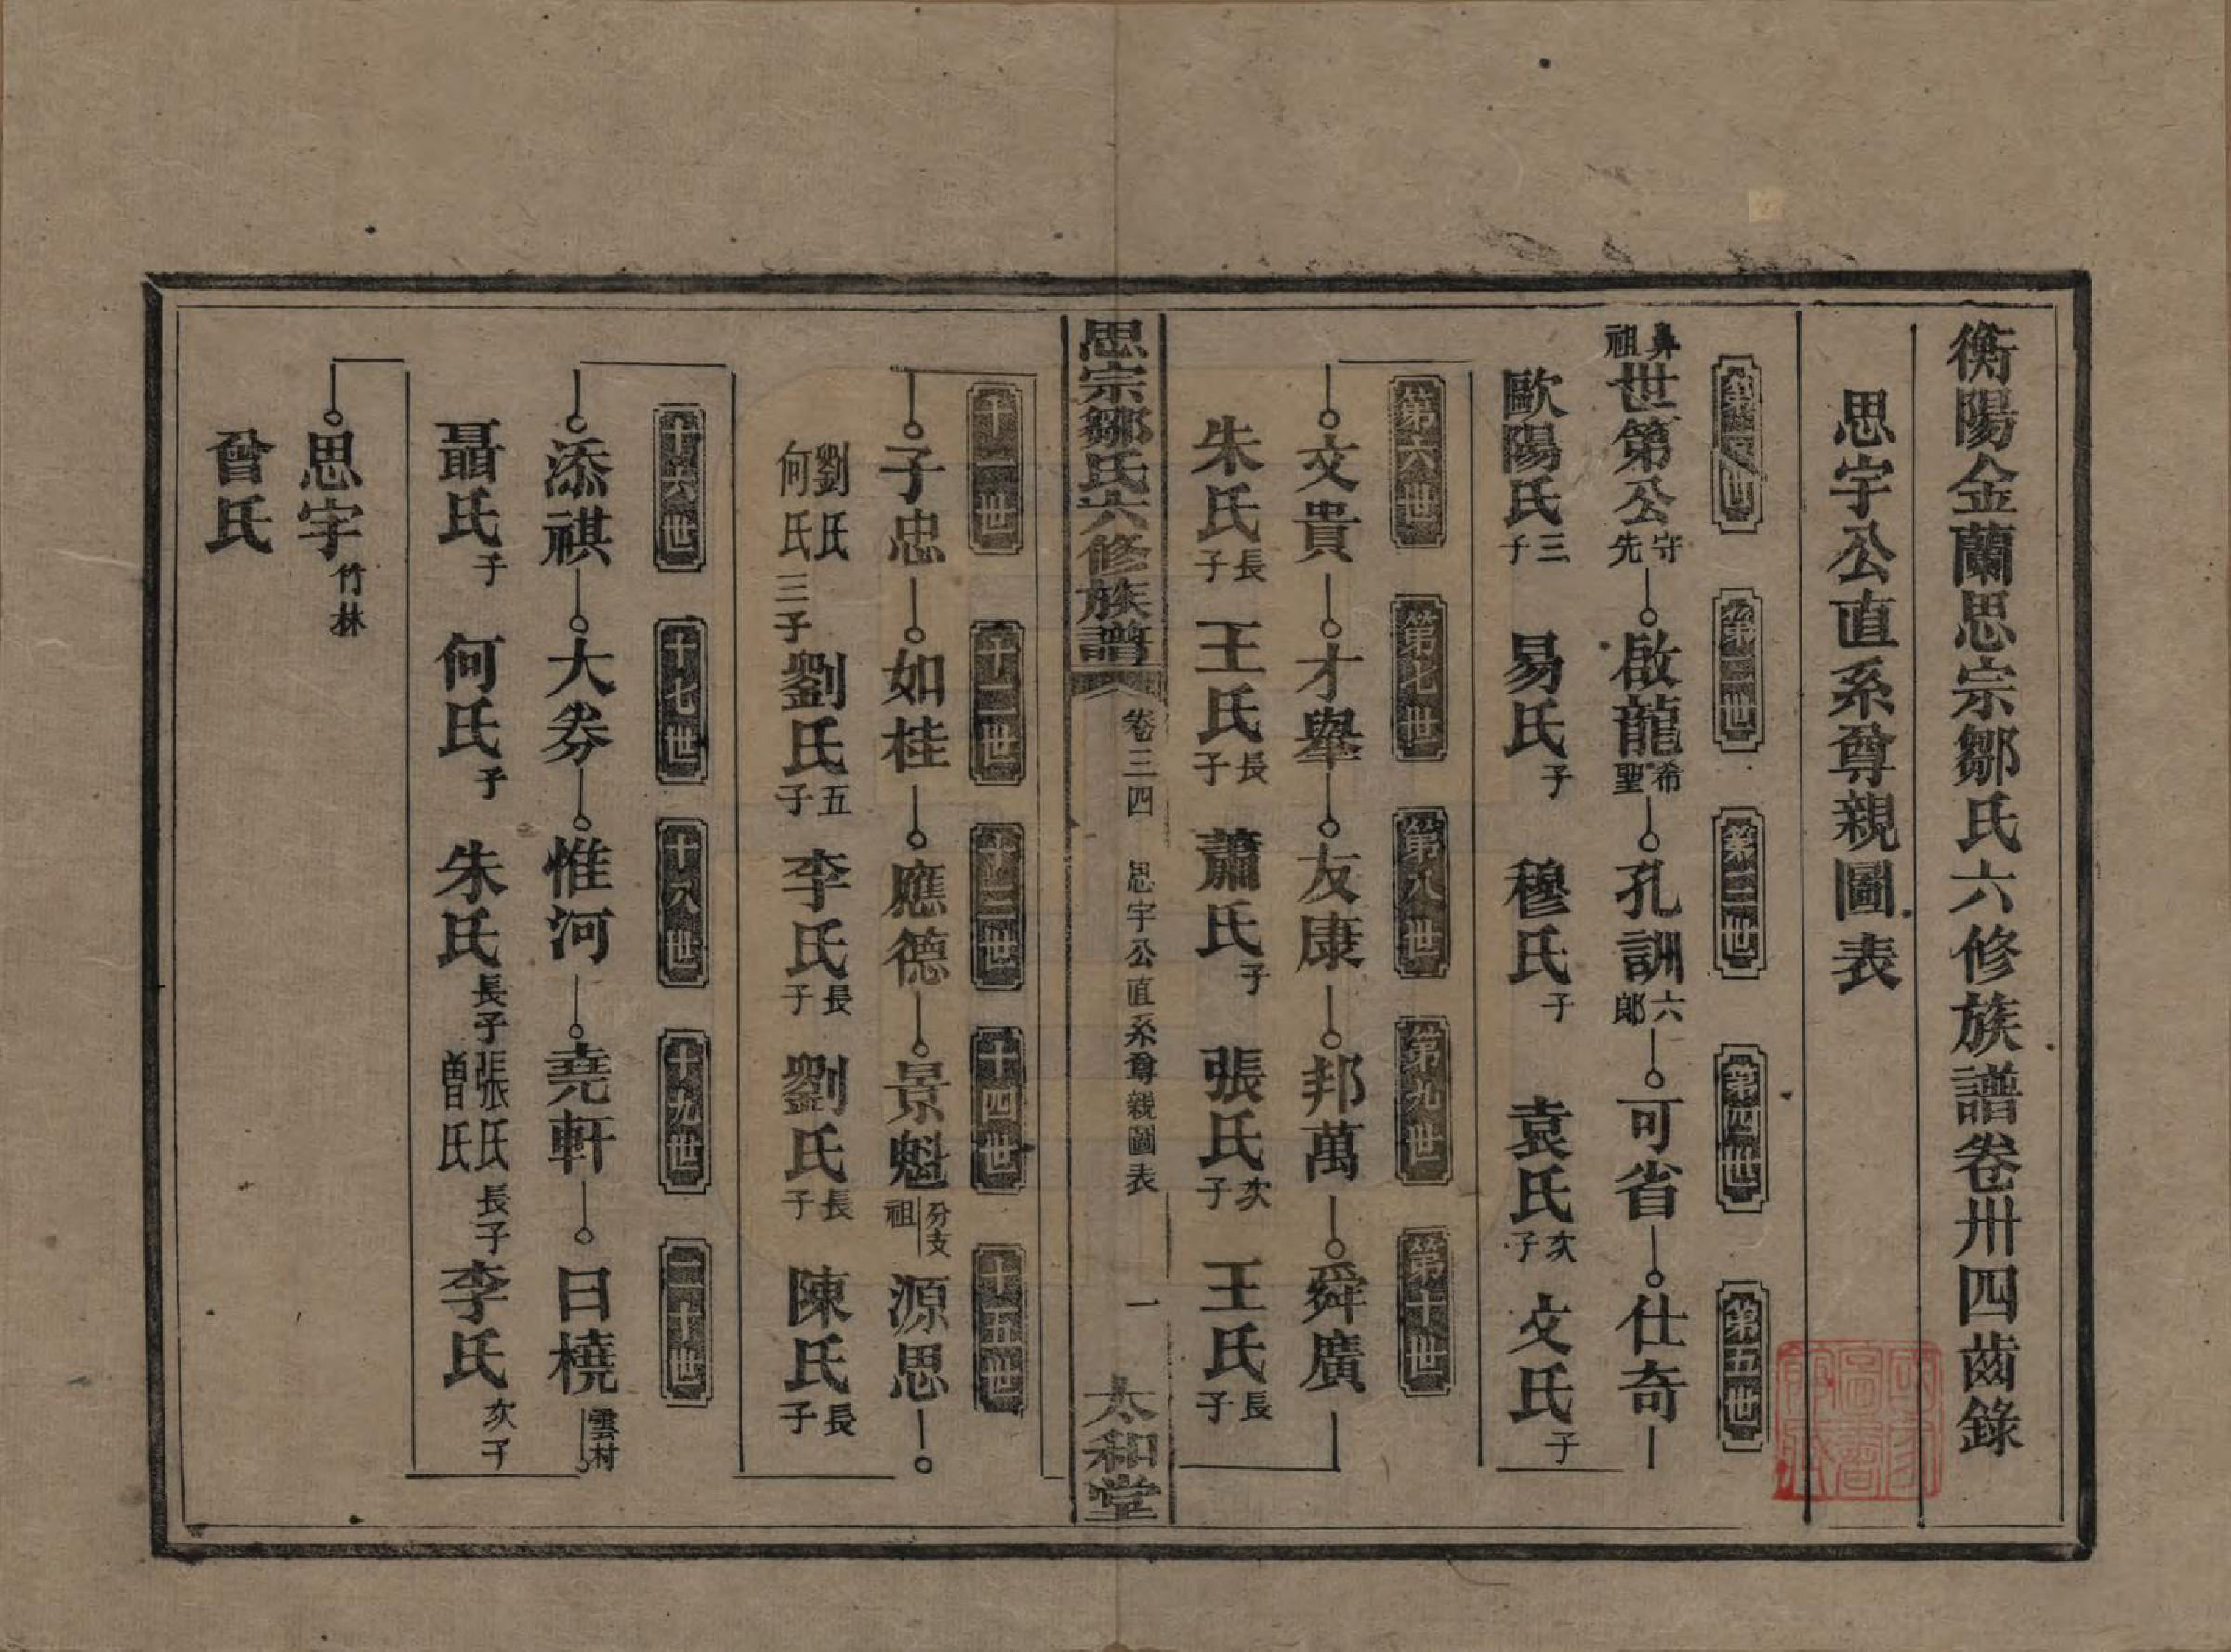 衡陽金蘭思宗鄒氏六修族譜卷卅四齒錄
思宇公直系尊親圖表
第一世 第二世 第三世 第四世 第五世
鼻祖世第公守先 啟龍希聖 孔訓六郎 可省 仕奇
歐陽氏三子 易氏子 穆氏子 袁氏次子 文氏子
第六世 第七世 第八世 第九世 第十世
文貴 才舉 友康 邦萬 舜廣
朱氏長子 王氏長子 蕭氏子 張氏次子 王氏長子
思宗鄒氏六修族譜 卷三四 思宇公直系尊親圖表 一 太和堂
十一世 十二世 十三世 十四世 十五世
子忠 如桂 應德 景魁分支祖 源思
劉氏何氏三子 劉氏五子 李氏長子 劉氏長子 陳氏長子
十六世 十七世 十八世 十九世 二十世
添祺 大劵 惟河 堯軒 日橈雲村
聶氏子 何氏子 朱氏長子 張氏曾氏長子 李氏次子
思宇竹林
曾氏